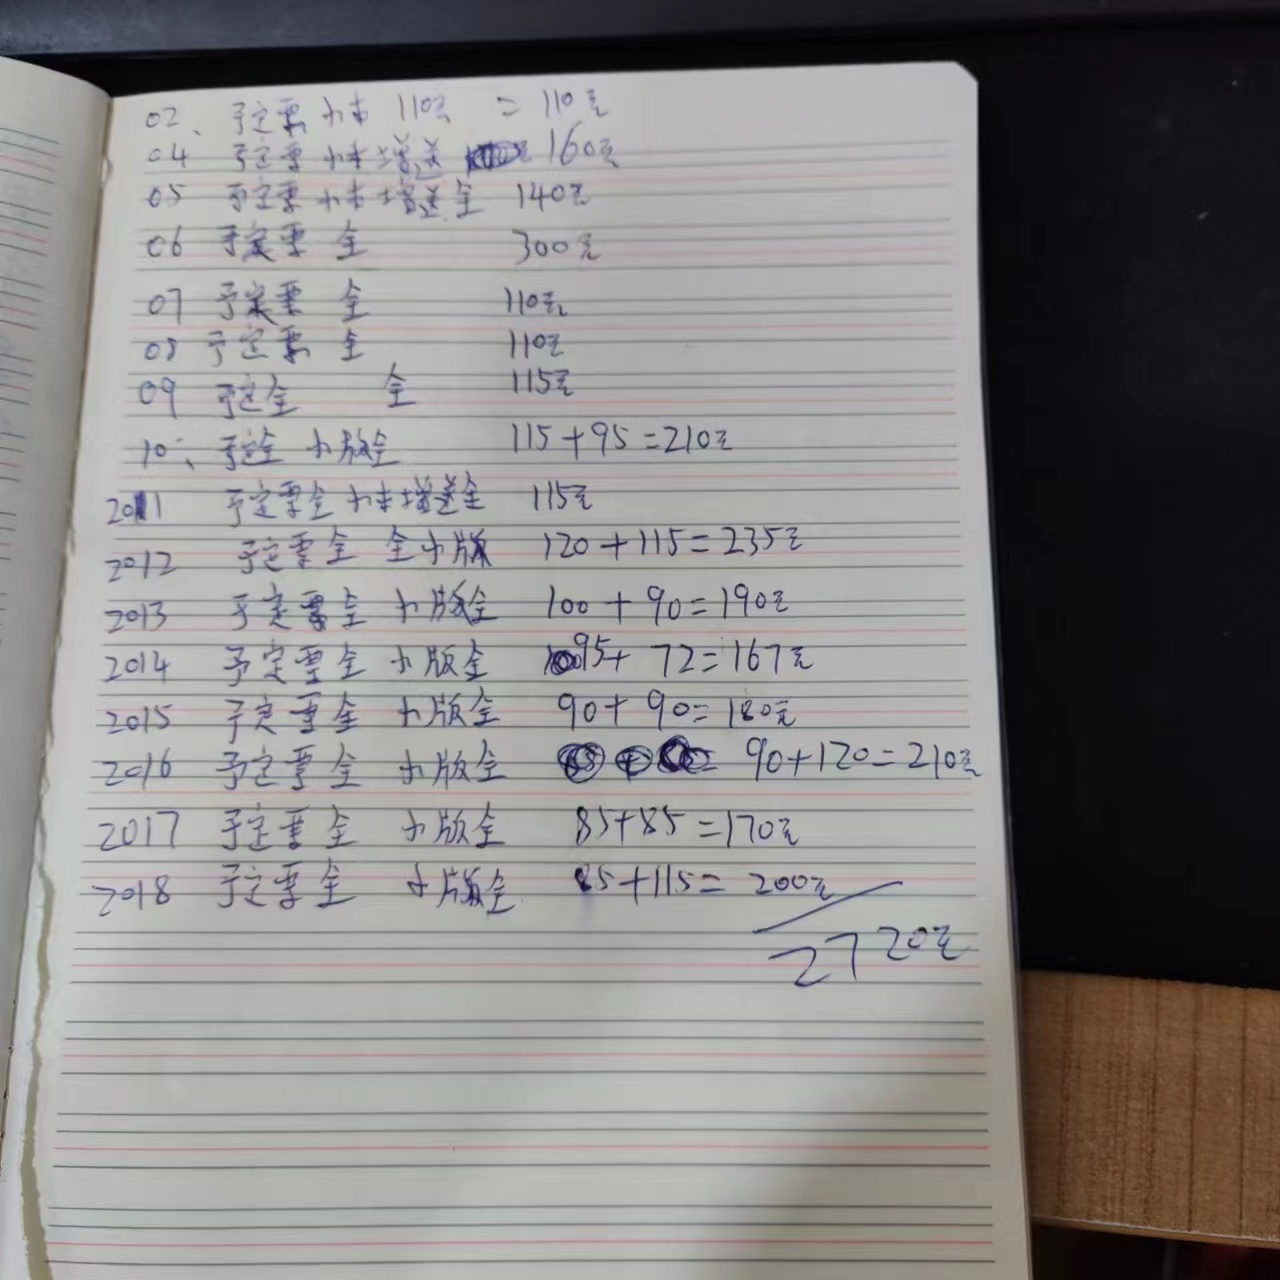 02、予定票 小本 110元 = 110元
04 予定票 小本增送 160元
05 予定票 小本增送全 140元
06 予定票 全 300元
07 予定票 全 110元
08 予定票 全 110元
09 予定全 全 115元
10、予定全 小版全 115+95=210元
2011 予定票全 小本增送全 115元
2012 予定票全 全小版 120+115=235元
2013 予定票全 小版全 100+90=190元
2014 予定票全 小版全 95+72=167元
2015 予定票全 小版全 90+90=180元
2016 予定票全 小版全 90+120=210元
2017 予定票全 小版全 85+85=170元
2018 予定票全 小版全 85+115=200元
2720元